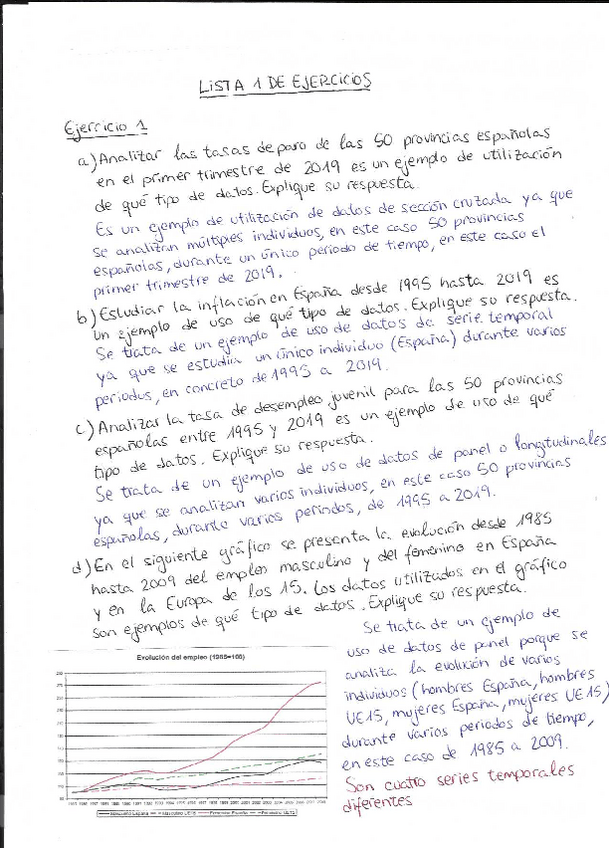 LISTA 1 DE EJERCICIOS
Ejercicio 1
a) Analizar las tasas de paro de las 50 provincias españolas
en el primer trimestre de 2019 es un ejemplo de utilización
de qué tipo de datos. Explique su respuesta.
Es un ejemplo de utilización de datos de sección cruzada ya que
se analizan múltiples individuos, en este caso 50 provincias
españolas, durante un único periodo de tiempo, en este caso el
primer trimestre de 2019.
b) Estudiar la inflación en España desde 1995 hasta 2019 es
un ejemplo de uso de qué tipo de datos. Explique su respuesta.
Se trata de un ejemplo de uso de datos de serie temporal
ya que se estudia un único individuo (España) durante varios
periodos, en concreto de 1995 a 2019.
c) Analizar la tasa de desempleo juvenil para las 50 provincias
españolas entre 1995 y 2019 es un ejemplo de uso de qué
tipo de datos. Explique su respuesta.
Se trata de un ejemplo de uso de datos de panel o longitudinales
ya que se analizan varios individuos, en este caso 50 provincias
españolas, durante varios periodos, de 1995 a 2019.
d) En el siguiente gráfico se presenta la evolución desde 1985
hasta 2009 del empleo masculino y del femenino en España
y en la Europa de los 15. Los datos utilizados en el gráfico
son ejemplos de qué tipo de datos. Explique su respuesta.
Se trata de un ejemplo de
uso de datos de panel porque se
analiza la evolución de varios
individuos (hombres España, hombres
UE15, mujeres España, mujeres UE15)
durante varios periodos de tiempo,
en este caso de 1985 a 2009.
Son cuatro series temporales
diferentes
Evolución del empleo (1985=100)
Masculino España Masculino UE15 Femenino España Femenino UE15